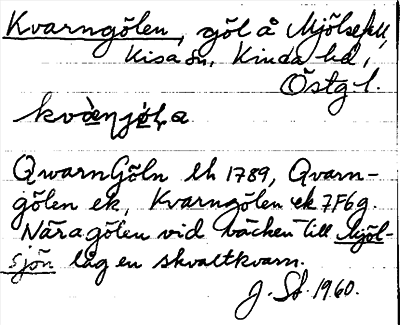 Kvarngölen, göl å Mjölsefall,
Kisa sn, Kinda hd,
Östg. l.
kvὰηjö̀la
QwarnGöln lh 1789, Qvarn-
gölen ek, Kvarngölen ek 7F6g.
Nära gölen vid bäcken till Mjöl-
sjön låg en skvaltkvarn.
J. St. 1960.